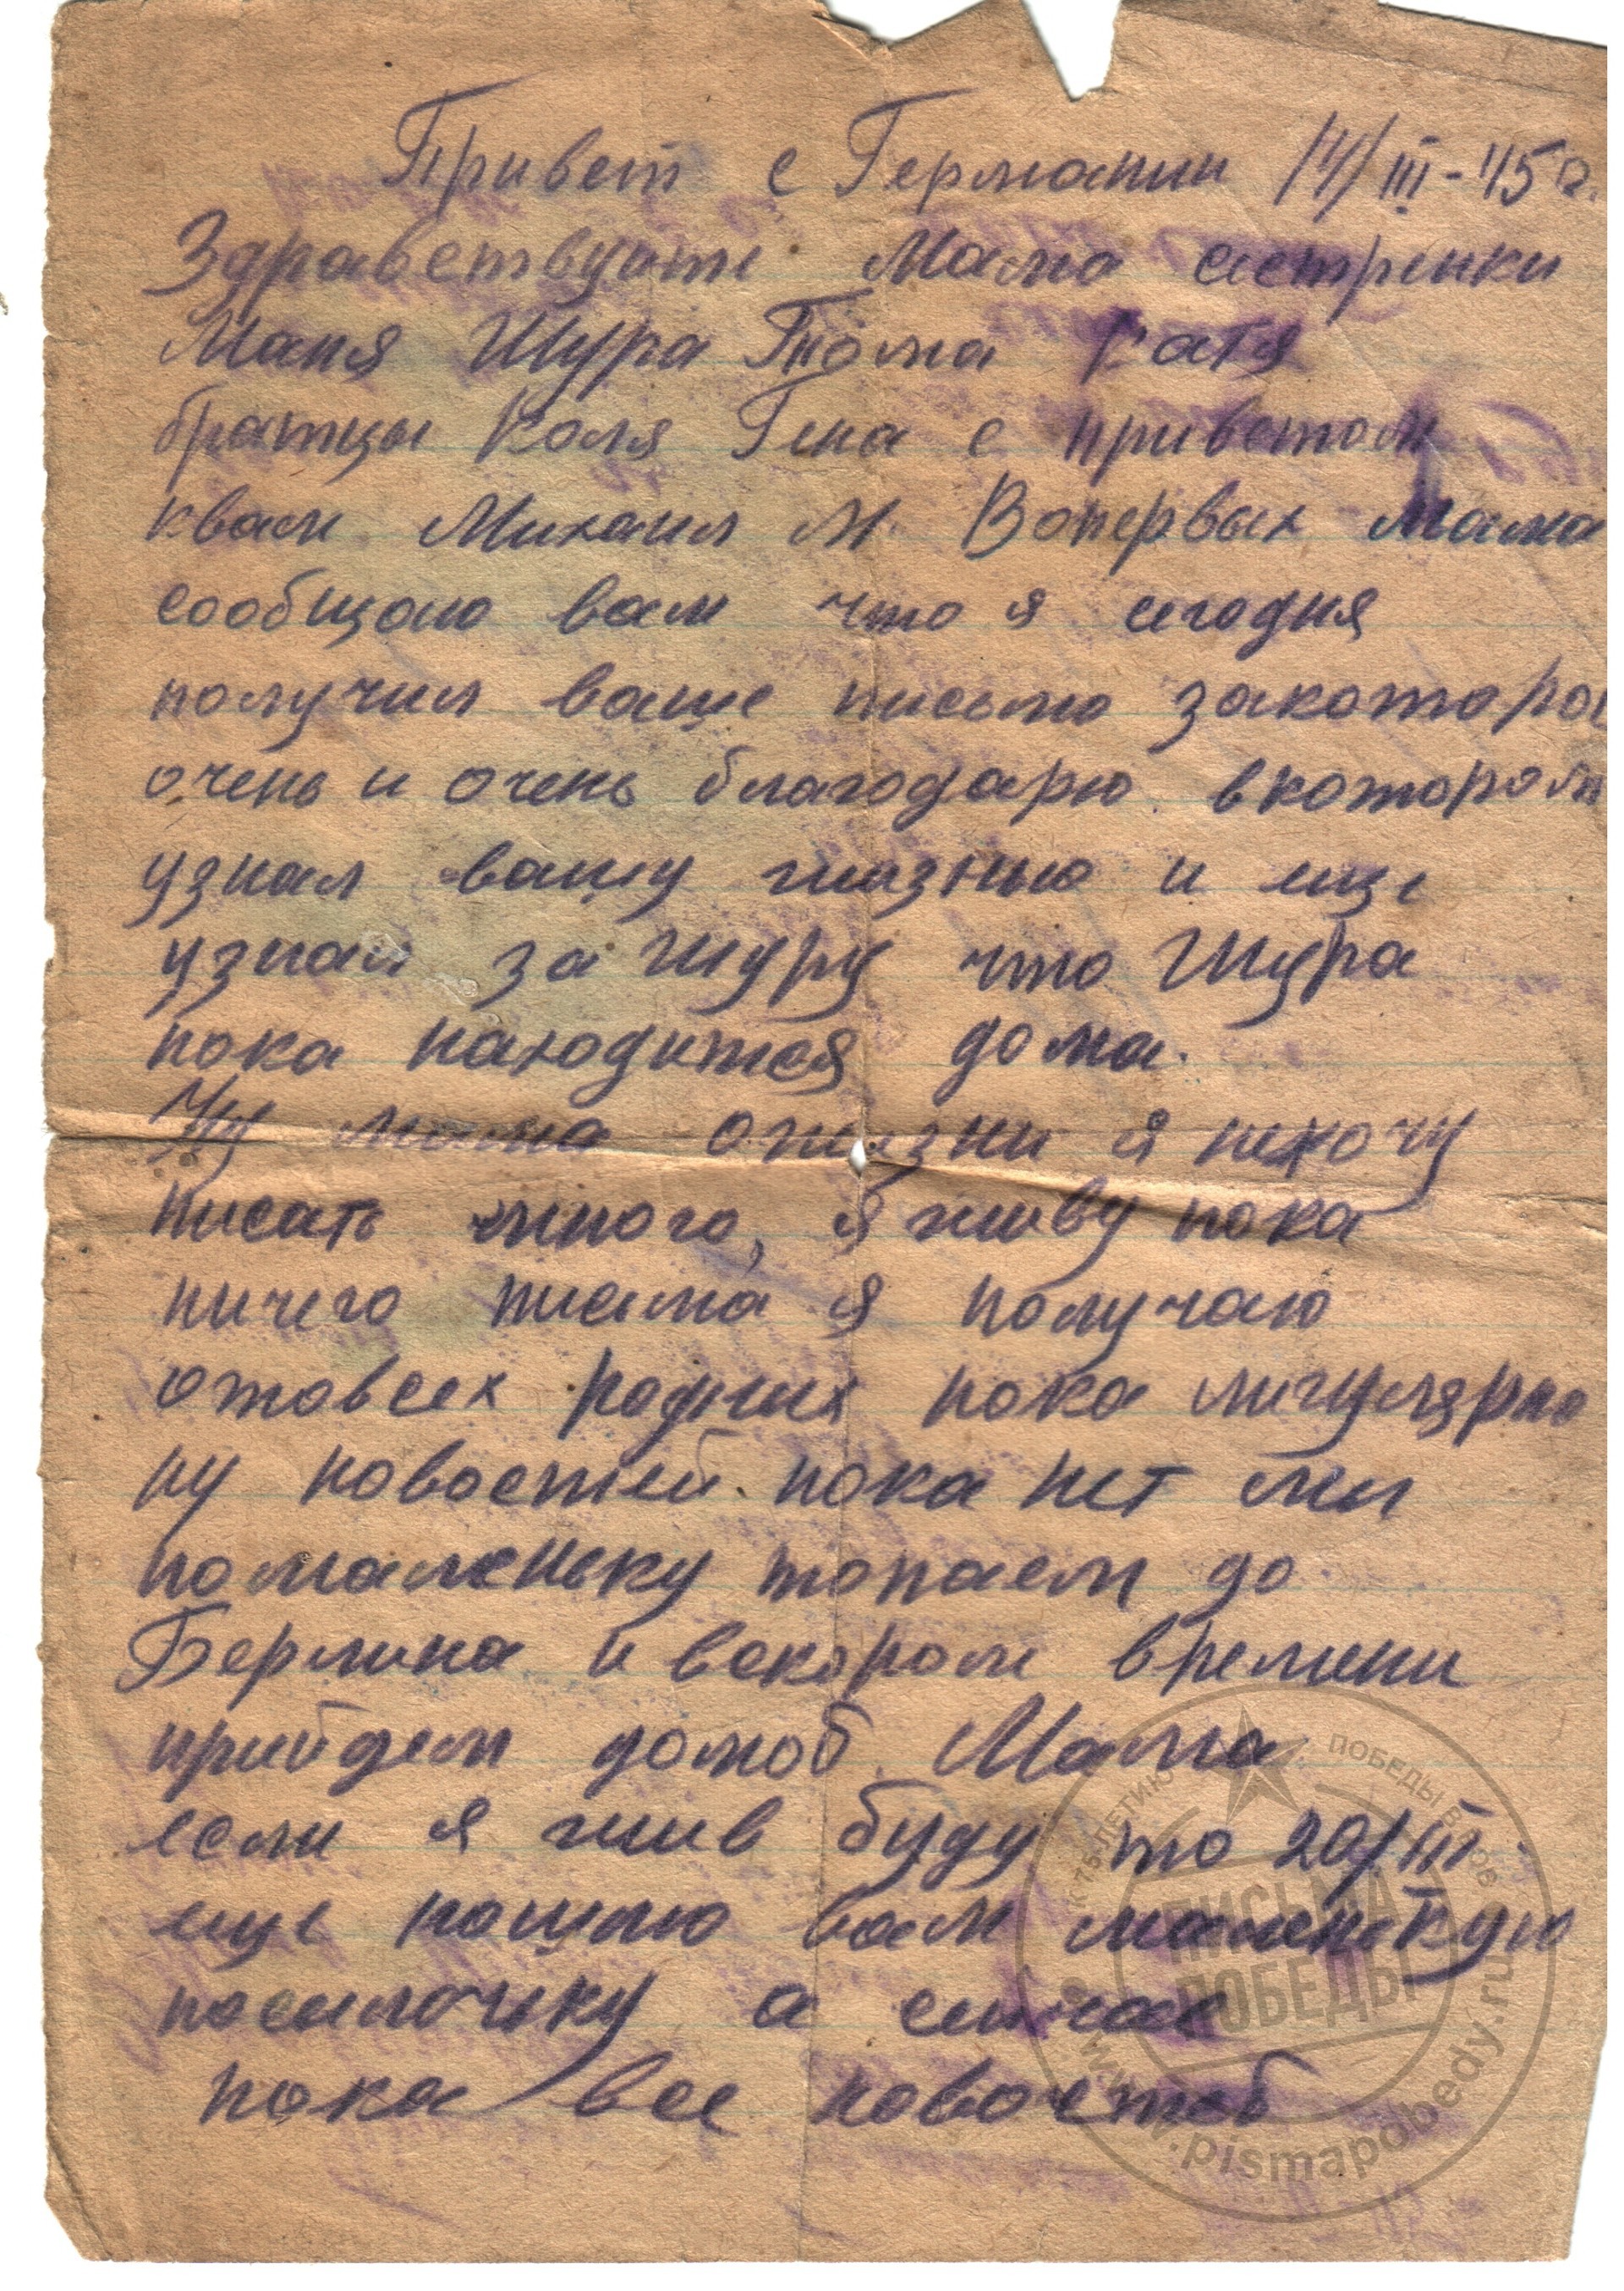 Привет с Германии 14/III-45 г.
Здравствуйти Мама систрински
Маня Шура Тома Катя
братцы Коля Гена с приветом
квам Михаил М. Вопервых мама
сообщаю вам что я сегодня
получил ваше письмо закоторое
очень и очень благодарю. вкотором
узнал вашу жизнью и ище
узнал за Шуру что Шура
пока находится дома.
Ну мама ожизни я нехочу
писать много, я живу пока
ничего писма я получаю
отовсех родних пока лигулярно
ну новостей пока нет мы
помаленьку топаем до
Берлина и вскором времини
прийдем домой. Мама
если я жив буду то 20/III.
ище пошлю вам маленькую
посилочику а сичас
пока все новостей
К 75-ЛЕТИЮ ПОБЕДЫ В ВОВ
ПИСЬМА ПОБЕДЫ
www.pismapobedy.ru